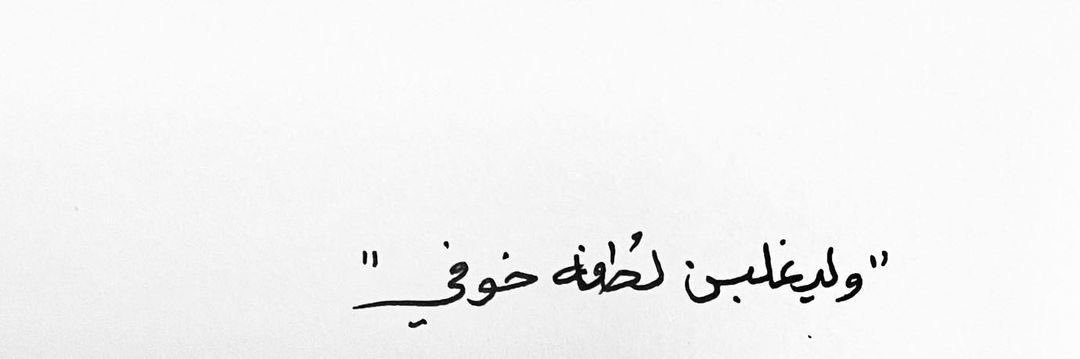 "وليغلبن لُطفه خوفي"